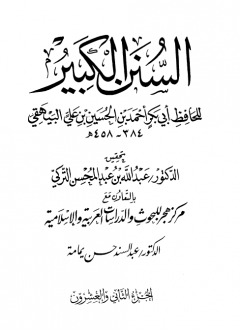 السنن الكبير
للحافظ أبي بكر أحمد بن الحسين بن علي البيهقي
٣٨٤ - ٤٥٨ هـ
تحقيق
الدكتور / عبد الله بن عبد المحسن التركي
بالتعاون مع
مركز هجر للبحوث والدراسات العربية والإسلامية
الدكتور / عبد السند حسن يمامة
الجزء الثاني والعشرون